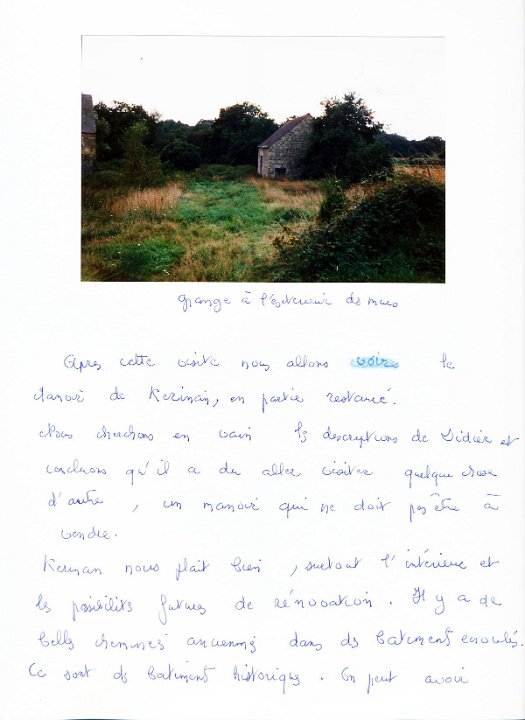 grange à l'Exterieur des murs
Après cette visite nous allons voir le
Manoir de Kerinan, en partie restauré.
Nous cherchons en vain les descriptions de Didier et
concluons qu'il a du aller visiter quelque chose
d'autre, un manoir qui ne doit pas être à
vendre.
Kerinan nous plait bien, surtout l'intérieur et
les possibilits futures de rénovation. Il y a de
belles cheminées anciennes dans ds batiments écroulés.
Ce sont ds batiments historiques. On peut avoir